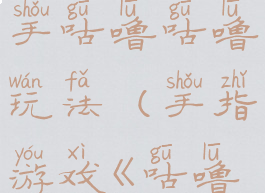 shǒu gū lū gū lū
手咕噜咕噜
wán fǎ shǒu zhǐ
玩法（手指
yóu xì gū lū
游戏《咕噜